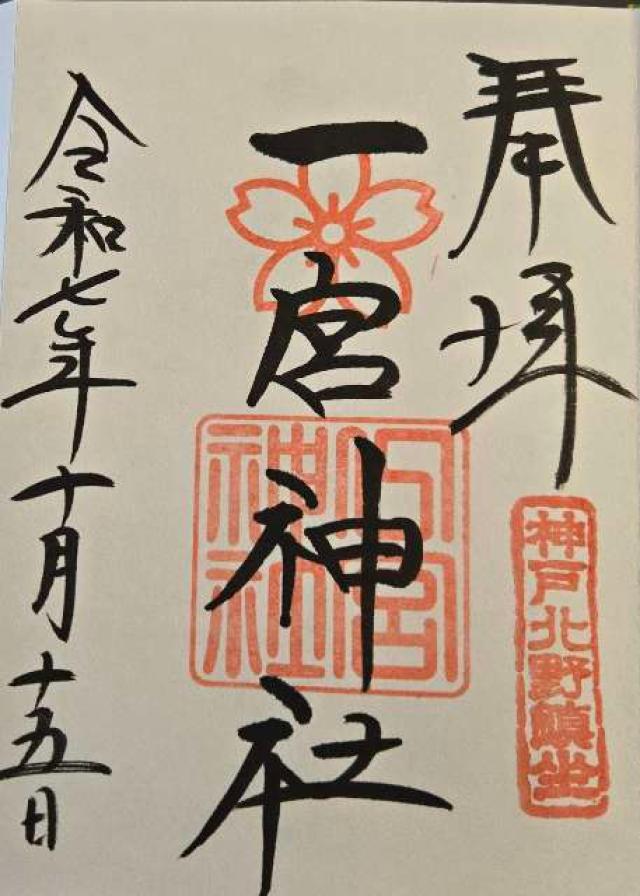 奉拝
神戸北野鎮坐
一宮神社
令和七年十月十五日